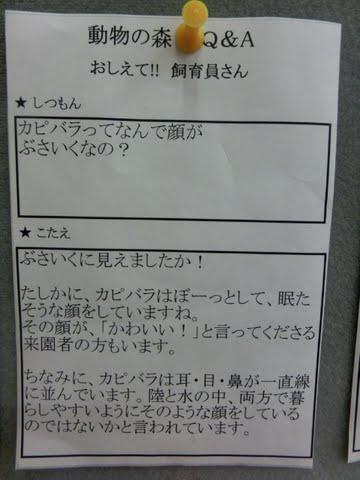 動物の森 Q&A
おしえて!! 飼育員さん
★ しつもん
カピバラってなんで顔が
ぶさいくなの？
★ こたえ
ぶさいくに見えましたか！
たしかに、カピバラはぼーっとして、眠た
そうな顔をしていますね。
その顔が、「かわいい！」と言ってくださる
来園者の方もいます。
ちなみに、カピバラは耳・目・鼻が一直線
に並んでいます。陸と水の中、両方で暮
らしやすいようにそのような顔をしている
のではないかと言われています。